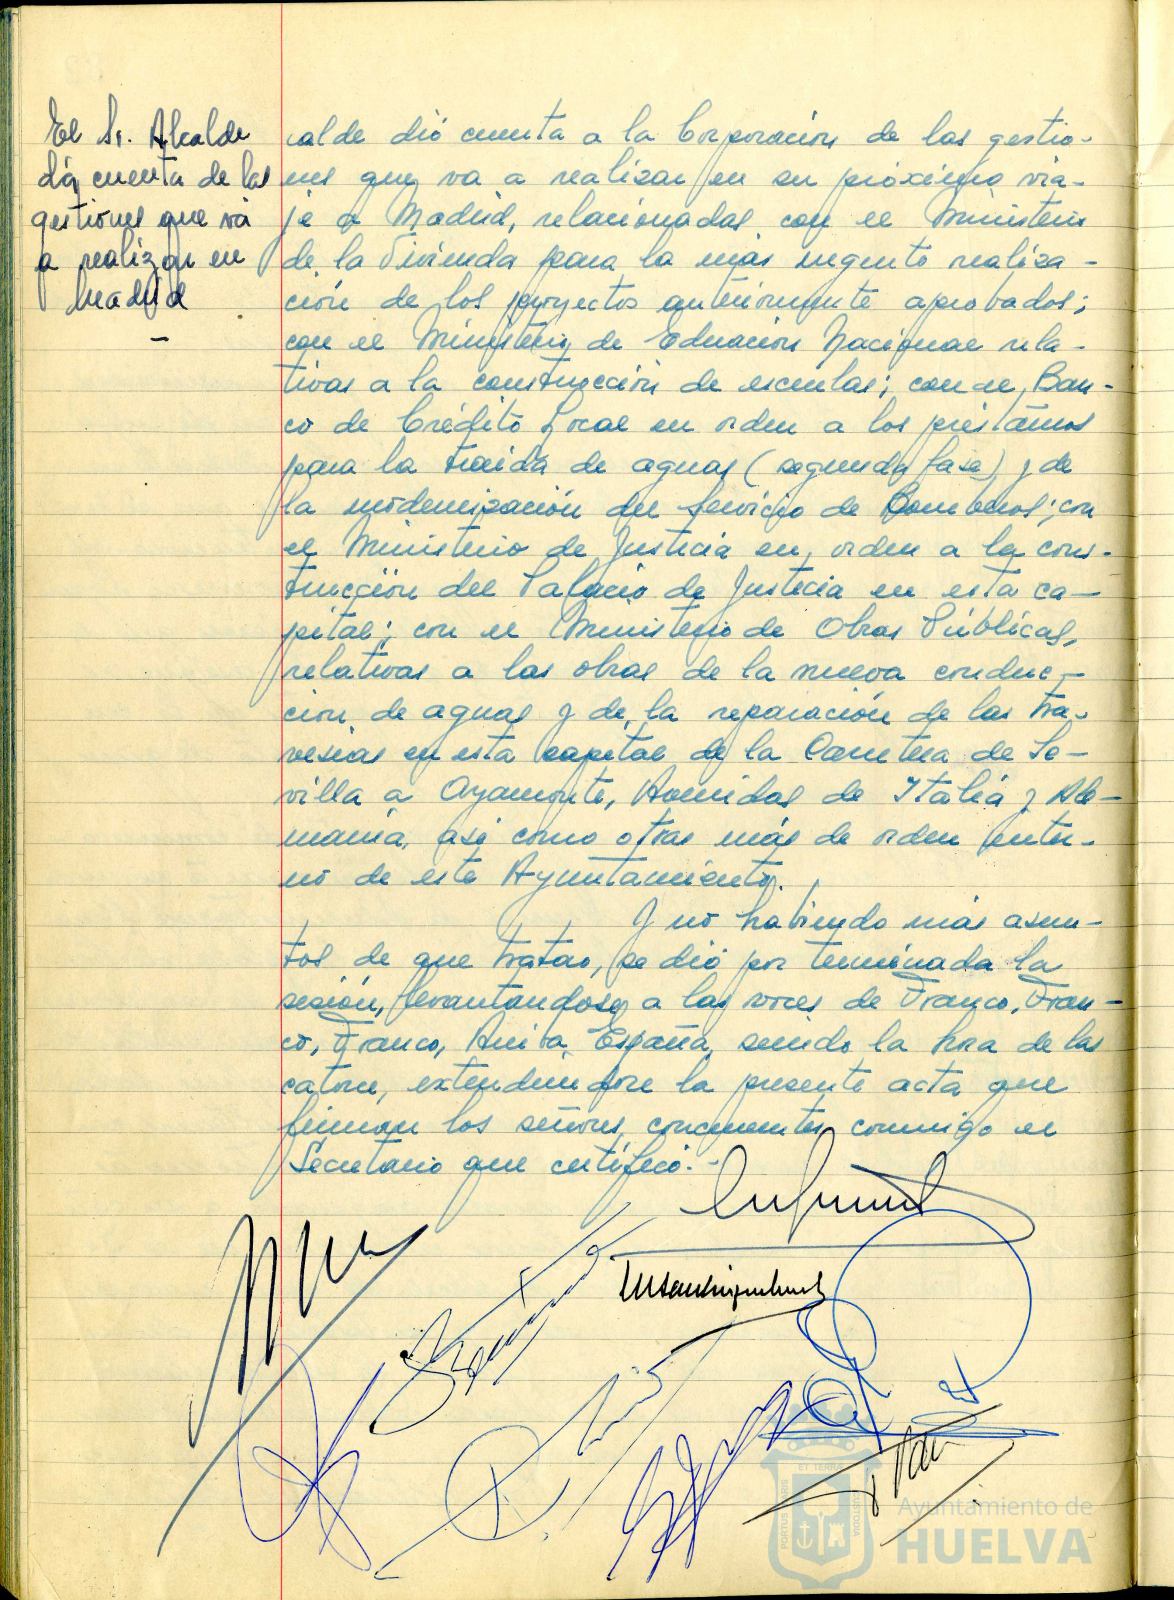 El Sr. Alcalde
dá cuenta de las
gestiones que va
a realizar en
Madrid
-
calde dió cuenta a la Corporación de las gestio-
nes que va a realizar en su próximo via-
je a Madrid, relacionadas con el Ministerio
de la Vivienda para la más urgente realiza-
ción de los proyectos anteriormente aprobados;
con el Ministerio de Educación Nacional rela-
tivas a la construcción de escuelas; con el Ban-
co de Crédito Local en orden a los préstamos
para la traida de aguas (segunda fase) y de
la modernización del Servicio de Bomberos; con
el Ministerio de Justicia en orden a la cons-
trucción del Palacio de Justicia en esta ca-
pital; con el Ministerio de Obras Públicas,
relativas a las obras de la nueva conduc-
ción de aguas y de la reparación de las tra-
vesias en esta capital de la Carretera de Se-
villa a Ayamonte, Avenidas de Italia y Ale-
mania, asi como otras más de orden inter-
no de este Ayuntamiento.
Y no habiendo más asun-
tos de que tratar, se dió por terminada la
sesión, levantandose a las voces de Franco, Fran-
co, Franco, Arriba España, siendo la hora de las
catorce, extendiendose la presente acta que
firman los señores concurrentes conmigo el
Secretario que certifico.-
ET TERRAE
PORTUS MARIS
CUSTODIA
Ayuntamiento de
HUELVA